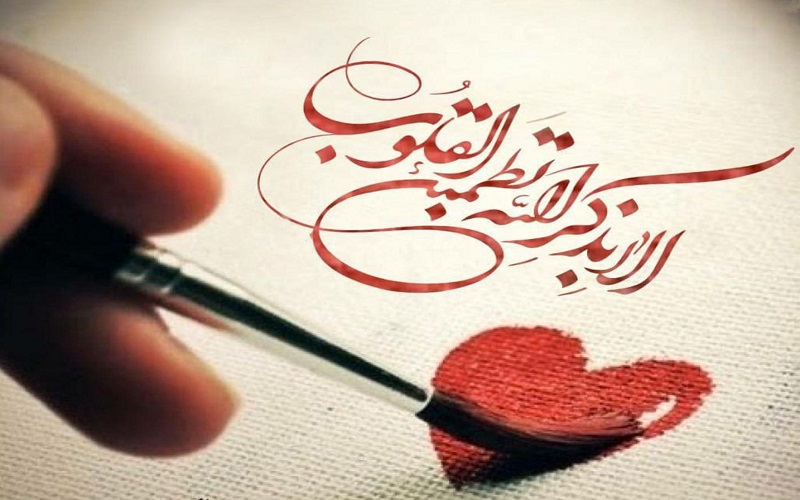 الا بذکر الله تطمئن القلوُب